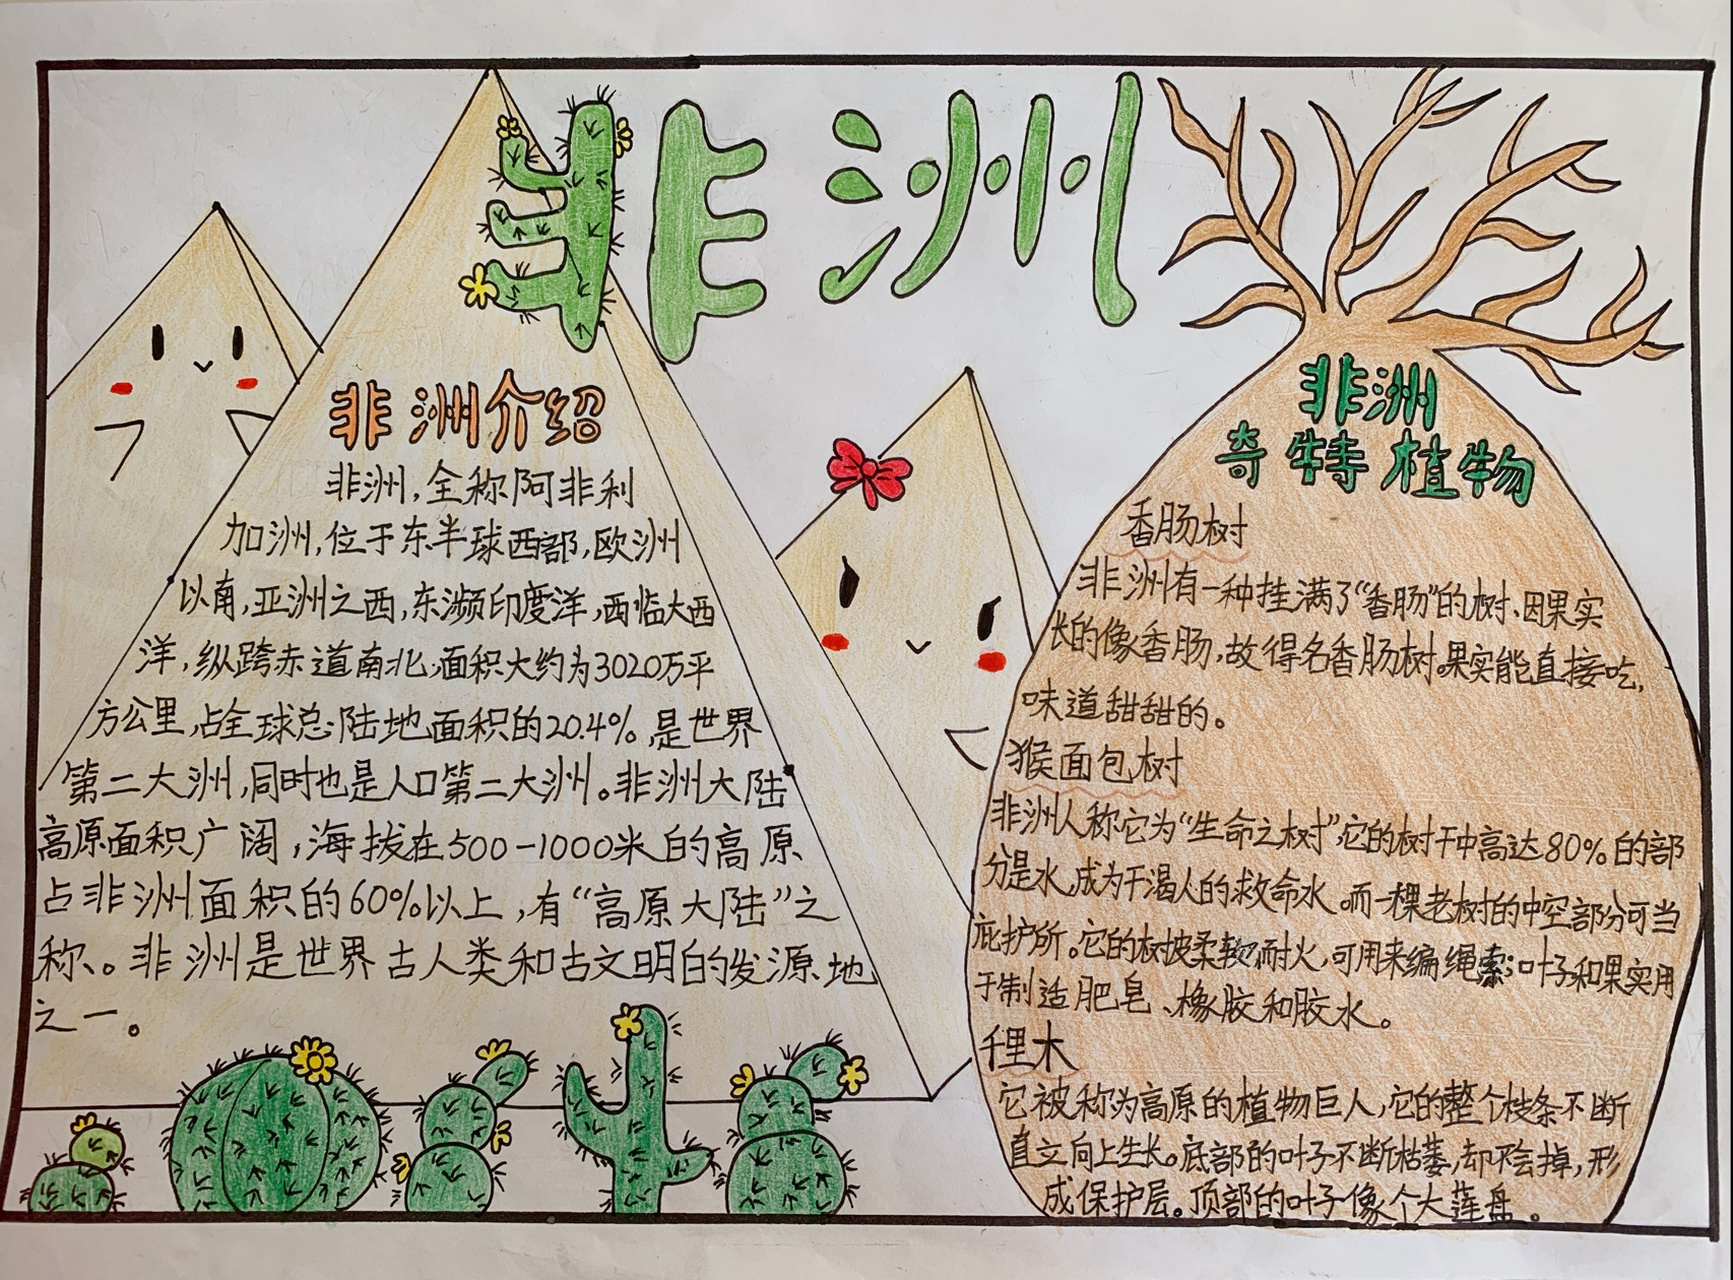 非洲
非洲介绍
非洲,全称阿非利
加洲,位于东半球西部,欧洲
以南,亚洲之西,东濒印度洋,西临大西
洋,纵跨赤道南北,面积大约为3020万平
方公里,占全球总陆地面积的20.4%。是世界
第二大洲,同时也是人口第二大洲。非洲大陆
高原面积广阔,海拔在500-1000米的高原
占非洲面积的60%以上,有“高原大陆”之
称、。非洲是世界古人类和古文明的发源地
之一。
非洲
奇特植物
香肠树
非洲有一种挂满了“香肠”的树、因果实
长的像香肠,故得名香肠树。果实能直接吃,
味道甜甜的。
猴面包树
非洲人称它为“生命之树”,它的树干中高达80%的部
分是水,成为干渴人的救命水。而一棵老树的中空部分可当
庇护所。它的树披柔软耐火,可用来编绳索;叶子和果实用
于制造肥皂、橡胶和胶水。
千里木
它被称为高原的植物巨人,它的整个枝条不断
直立向上生长。底部的叶子不断枯萎,却不会掉,形
成保护层。顶部的叶子像个大莲盘。